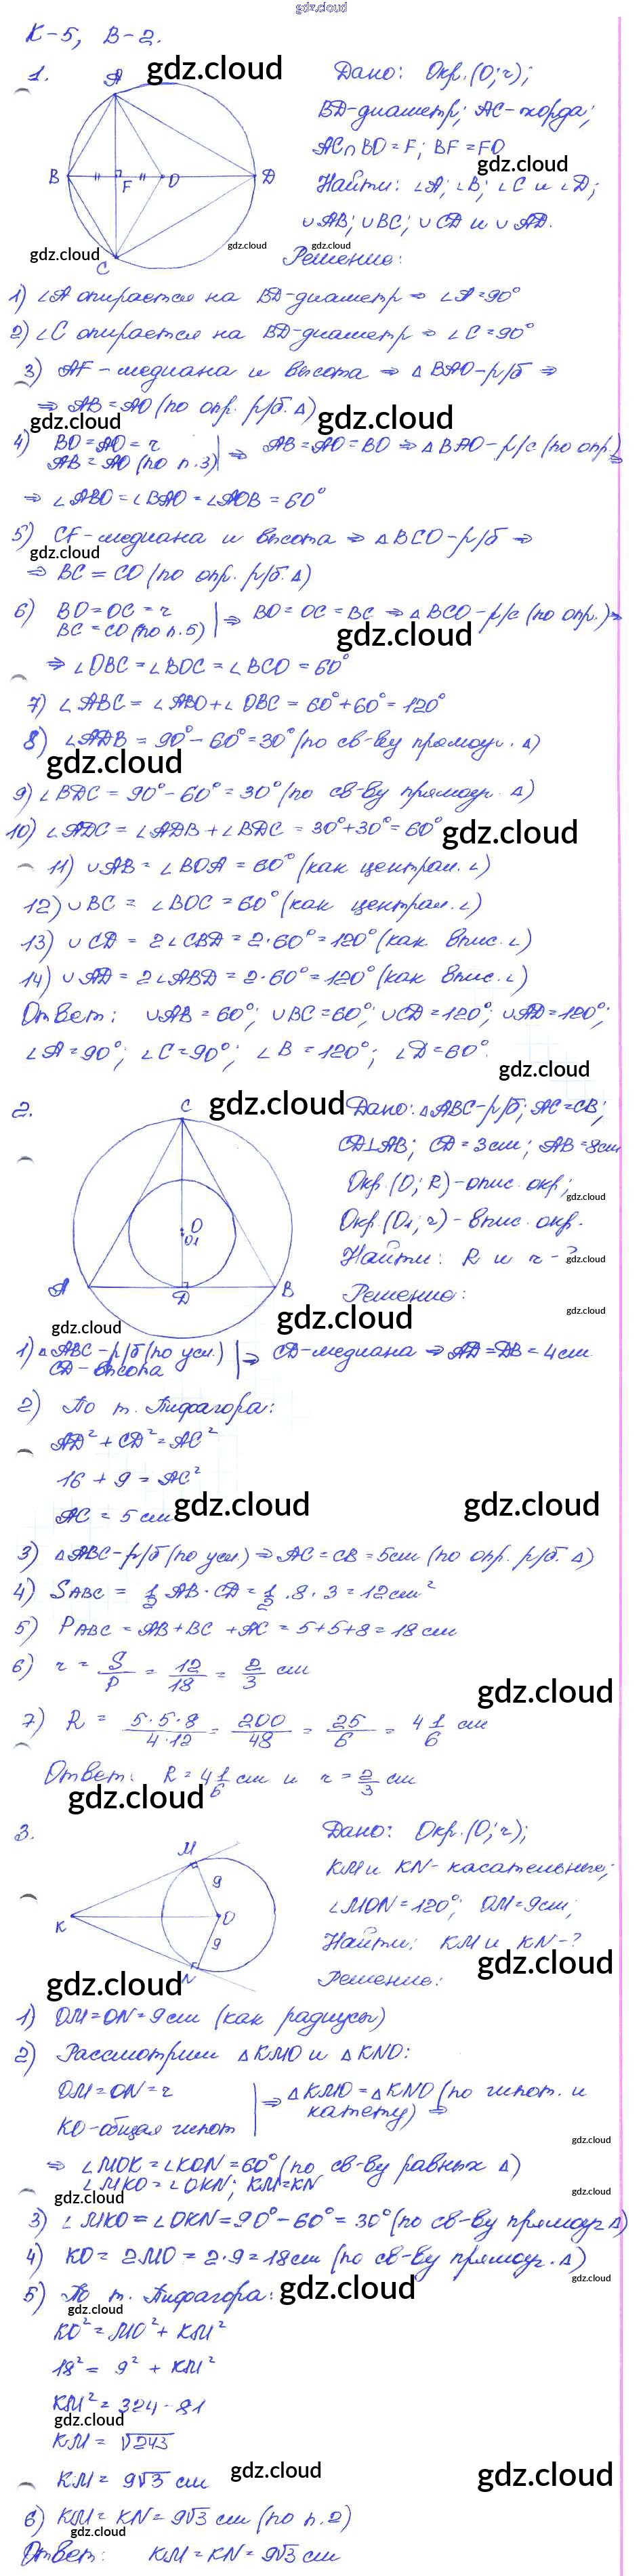 gdz.cloud
К-5, В-2.
1.
gdz.cloud
A
B
F
O
D
C
Дано: Окр.(O;r);
BD-диаметр; AC-хорда;
AC∩BD=F; BF=FO
gdz.cloud
Найти: ∠A; ∠B; ∠C и ∠D;
∪AB; ∪BC; ∪CD и ∪AD.
gdz.cloud
gdz.cloud
gdz.cloud
Решение:
1) ∠A опирается на BD-диаметр ⇒ ∠A=90°
2) ∠C опирается на BD-диаметр ⇒ ∠C=90°
3) AF-медиана и высота ⇒ △BAO-р/б ⇒
⇒ AB=AO (по опр. р/б. △)
gdz.cloud
gdz.cloud
4) BO=AO=r
AB=AO (по п.3)
⇒ AB=AO=BO ⇒ △BAO-р/с (по опр.) ⇒
⇒ ∠ABO=∠BAO=∠AOB=60°
5) CF-медиана и высота ⇒ △BCO-р/б ⇒
gdz.cloud
⇒ BC=CO (по опр. р/б. △)
6) BO=OC=r
BC=CO (по п.5)
⇒ BO=OC=BC ⇒ △BCO-р/с (по опр.) ⇒
gdz.cloud
⇒ ∠OBC=∠BOC=∠BCO=60°
7) ∠ABC=∠ABO+∠OBC=60°+60°=120°
8) ∠ADB=90°-60°=30° (по св-ву прямоуг. △)
gdz.cloud
9) ∠BDC=90°-60°=30° (по св-ву прямоуг. △)
10) ∠ADC=∠ADB+∠BDC=30°+30°=60°
gdz.cloud
11) ∪AB=∠BOA=60° (как централ. ∠)
12) ∪BC=∠BOC=60° (как централ. ∠)
13) ∪CD=2∠CBD=2·60°=120° (как. впис. ∠)
14) ∪AD=2∠ABD=2·60°=120° (как впис. ∠)
Ответ: ∪AB=60°; ∪BC=60°; ∪CD=120°; ∪AD=120°;
∠A=90°; ∠C=90°; ∠B=120°; ∠D=60°.
gdz.cloud
2.
C
O
O1
A
D
B
gdz.cloud
Дано: △ABC-р/б; AC=CB;
CD⊥AB; CD=3см; AB=8см
Окр.(O; R)-опис. окр;
gdz.cloud
Окр.(O1; r)-впис. окр.
Найти: R и r-?
gdz.cloud
Решение:
gdz.cloud
gdz.cloud
gdz.cloud
1) △ABC-р/б (по усл.)
CD-высота
⇒ CD-медиана ⇒ AD=DB=4см
2) По т. Пифагора:
AD²+CD²=AC²
16+9=AC²
AC=5см
gdz.cloud
gdz.cloud
3) △ABC-р/б (по усл.) ⇒ AC=CB=5см (по опр. р/б. △)
4) SABC = 1/2 AB·CD = 1/2 ·8·3=12см²
5) PABC = AB+BC+AC=5+5+8=18см
6) r = S/P = 12/18 = 2/3 см
gdz.cloud
7) R = 5·5·8/4·12 = 200/48 = 25/6 = 4 1/6 см
Ответ: R=4 1/6 см и r=2/3 см
gdz.cloud
3.
M
9
K
O
9
N
Дано: Окр.(O;r);
KM и KN-касательные;
∠MON=120°; OM=9см;
Найти: KM и KN-?
gdz.cloud
gdz.cloud
Решение:
1) OM=ON=9см (как радиусы)
2) Рассмотрим △KMO и △KNO:
OM=ON=r
KO-общая гипот
⇒ △KMO=△KNO (по гипот. и
катету) ⇒
gdz.cloud
⇒ ∠MOK=∠KON=60° (по св-ву равных △)
∠MKO=∠OKN; KM=KN
gdz.cloud
gdz.cloud
3) ∠MKO=∠OKN=90°-60°=30° (по св-ву прямоуг △)
4) KO=2MO=2·9=18см (по св-ву прямоуг. △)
gdz.cloud
5) По т. Пифагора:
gdz.cloud
gdz.cloud
KO²=MO²+KM²
18²=9²+KM²
KM²=324-81
gdz.cloud
KM=√243
KM=9√3 см
gdz.cloud
gdz.cloud
6) KM=KN=9√3 см (по п.2)
gdz.cloud
Ответ: KM=KN=9√3 см